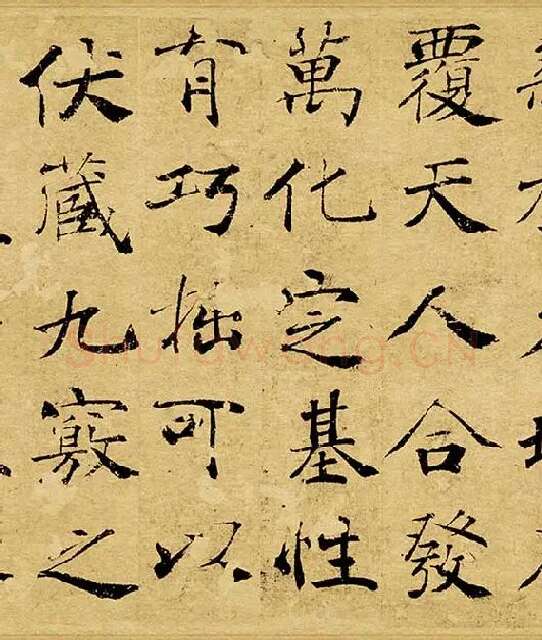 覆天人合發
萬化定基性
有巧拙可以
伏藏九竅之
shufawang.CN